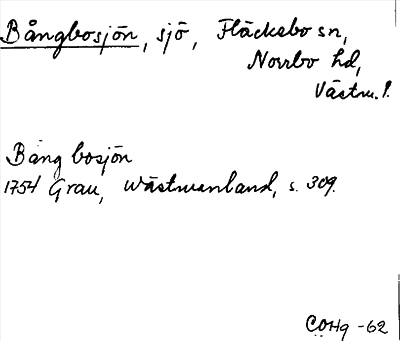 Bångbosjön, sjö, Fläcksbo sn,
Norrbo hd,
Västm. l.
Bång bosjön
1754 Grau, Wästmanland, s. 309.
COHg -62